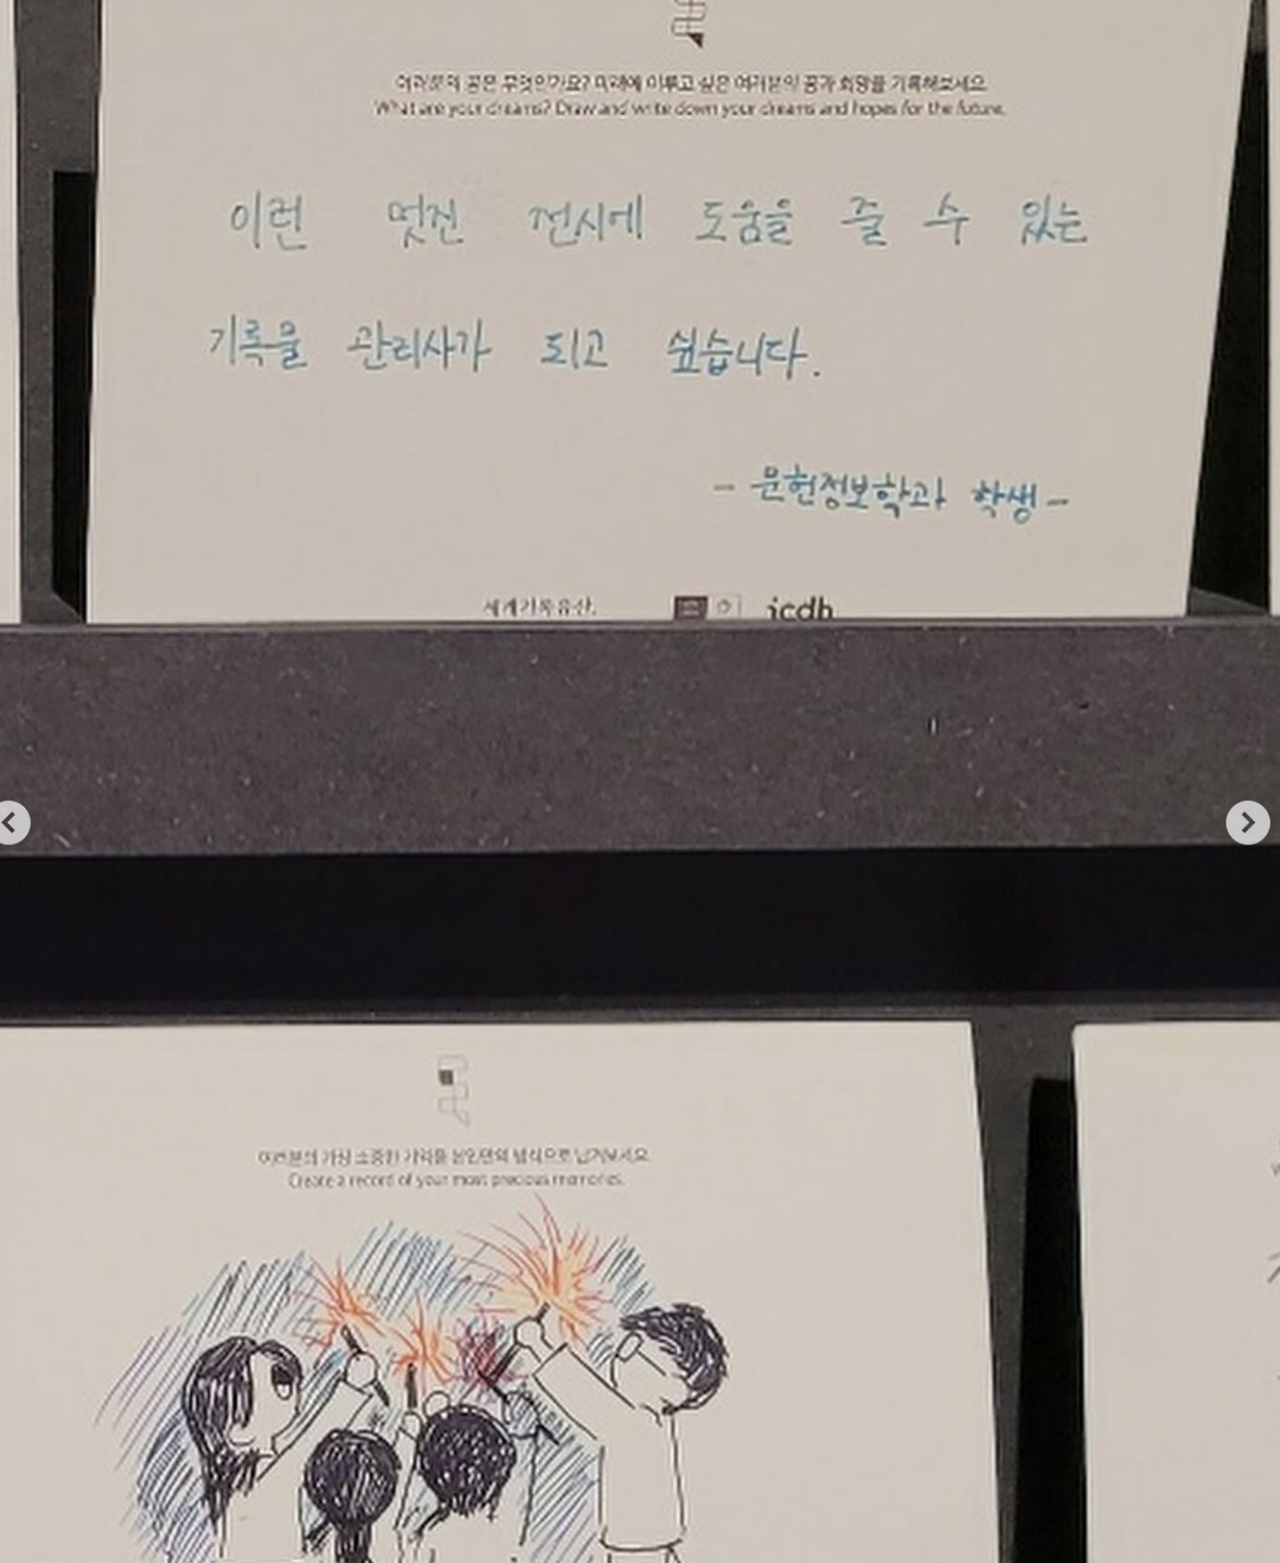 여러분의 꿈은 무엇인가요? 미래에 이루고 싶은 여러분의 꿈과 희망을 기록해보세요
What are your dreams? Draw and write down your dreams and hopes for the future.
이런 멋진 전시에 도움을 줄 수 있는
기록물 관리사가 되고 싶습니다.
- 문헌정보학과 학생 -
세계기록유산.
icdh
여러분의 가장 소중한 기억을 본인만의 방식으로 남겨보세요
Create a record of your most precious memories.